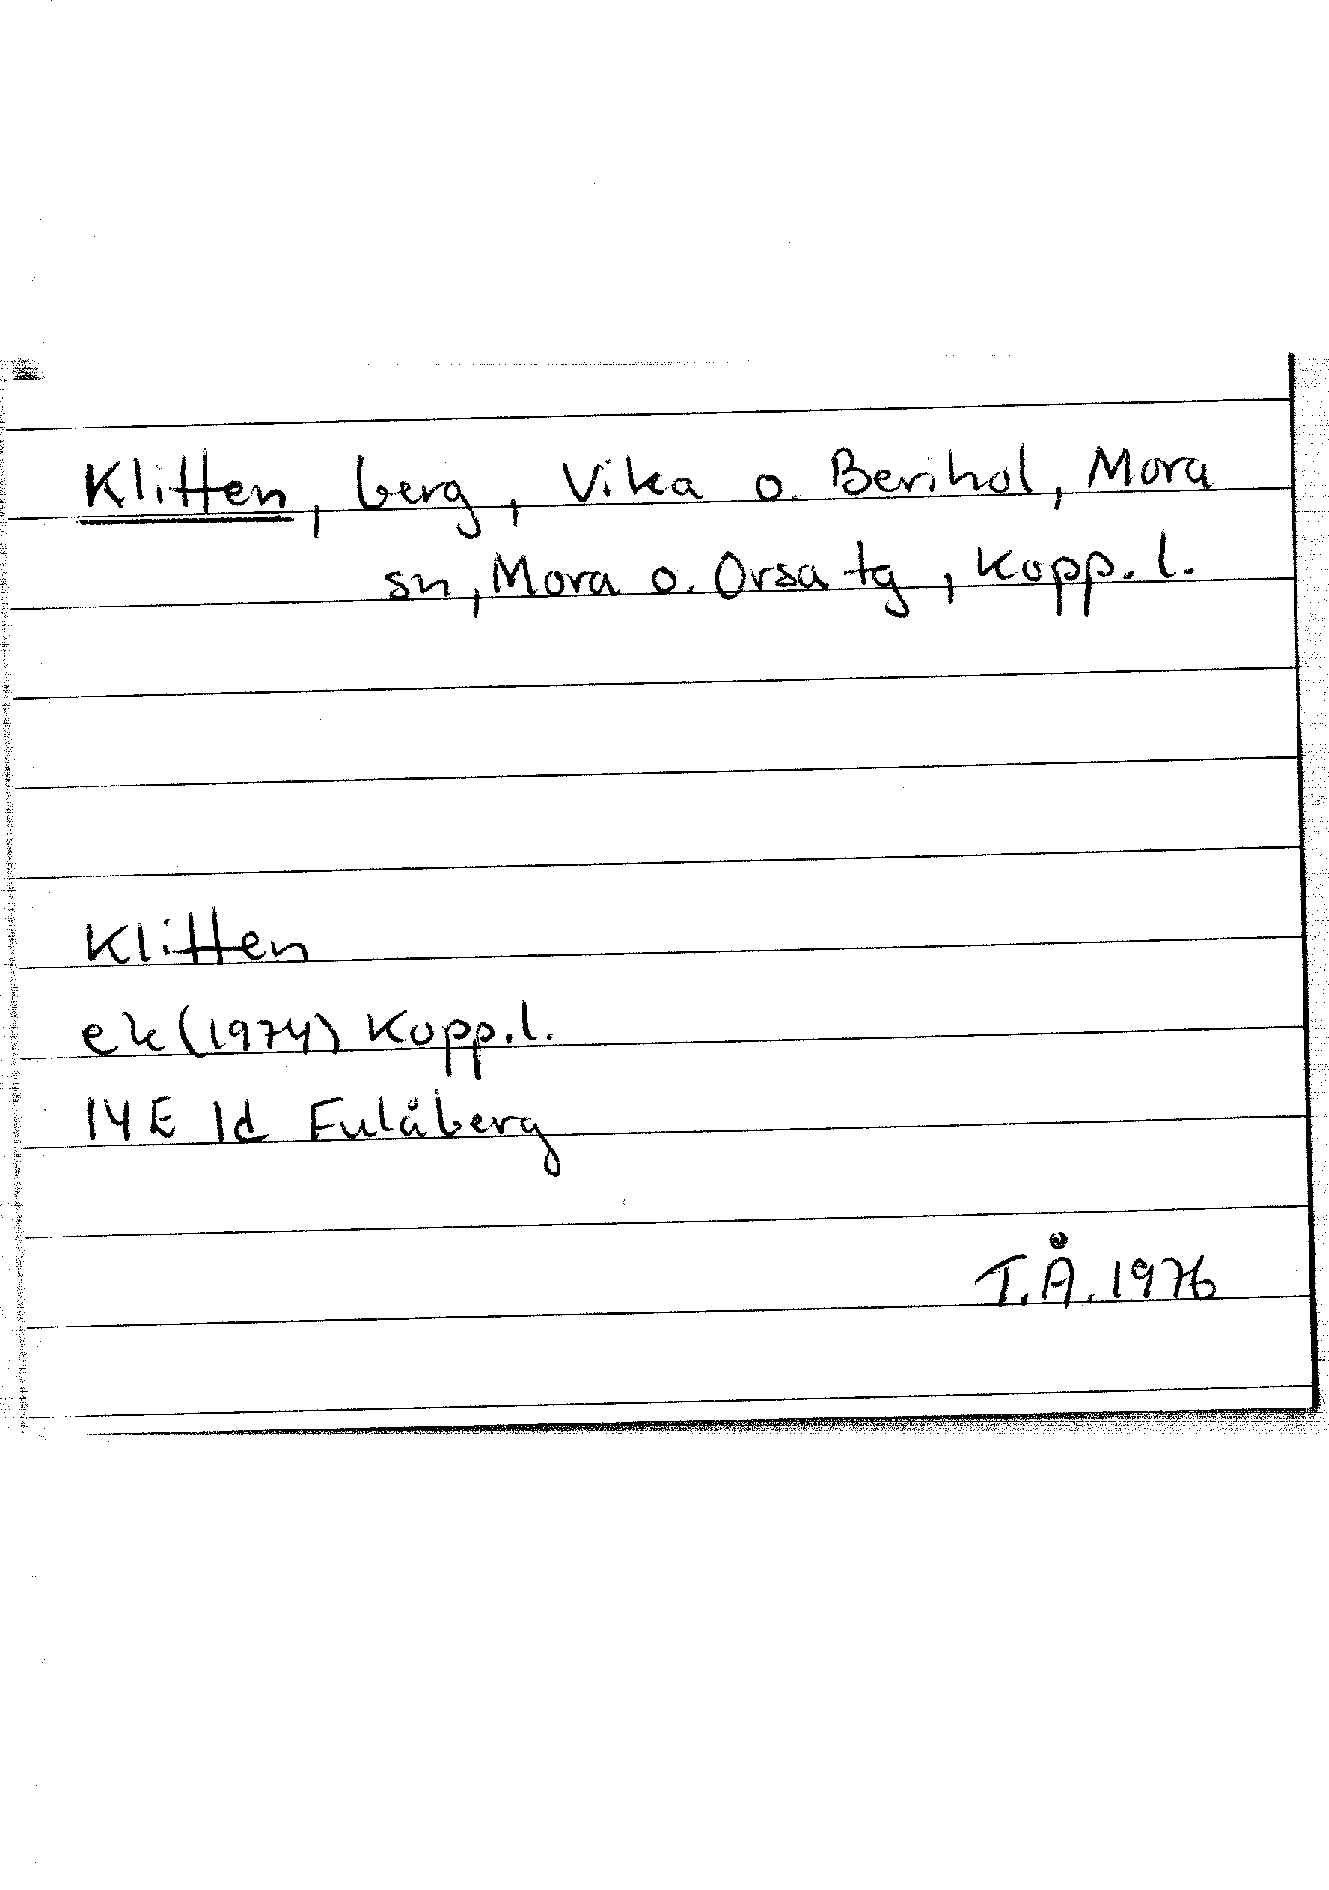 Klitten, berg, Vika o. Berihol, Mora
sn, Mora o. Orsa tg, Kopp. l.
Klitten
ek (1974) Kopp. l.
14E 1d Fulåberg
T.Å. 1976